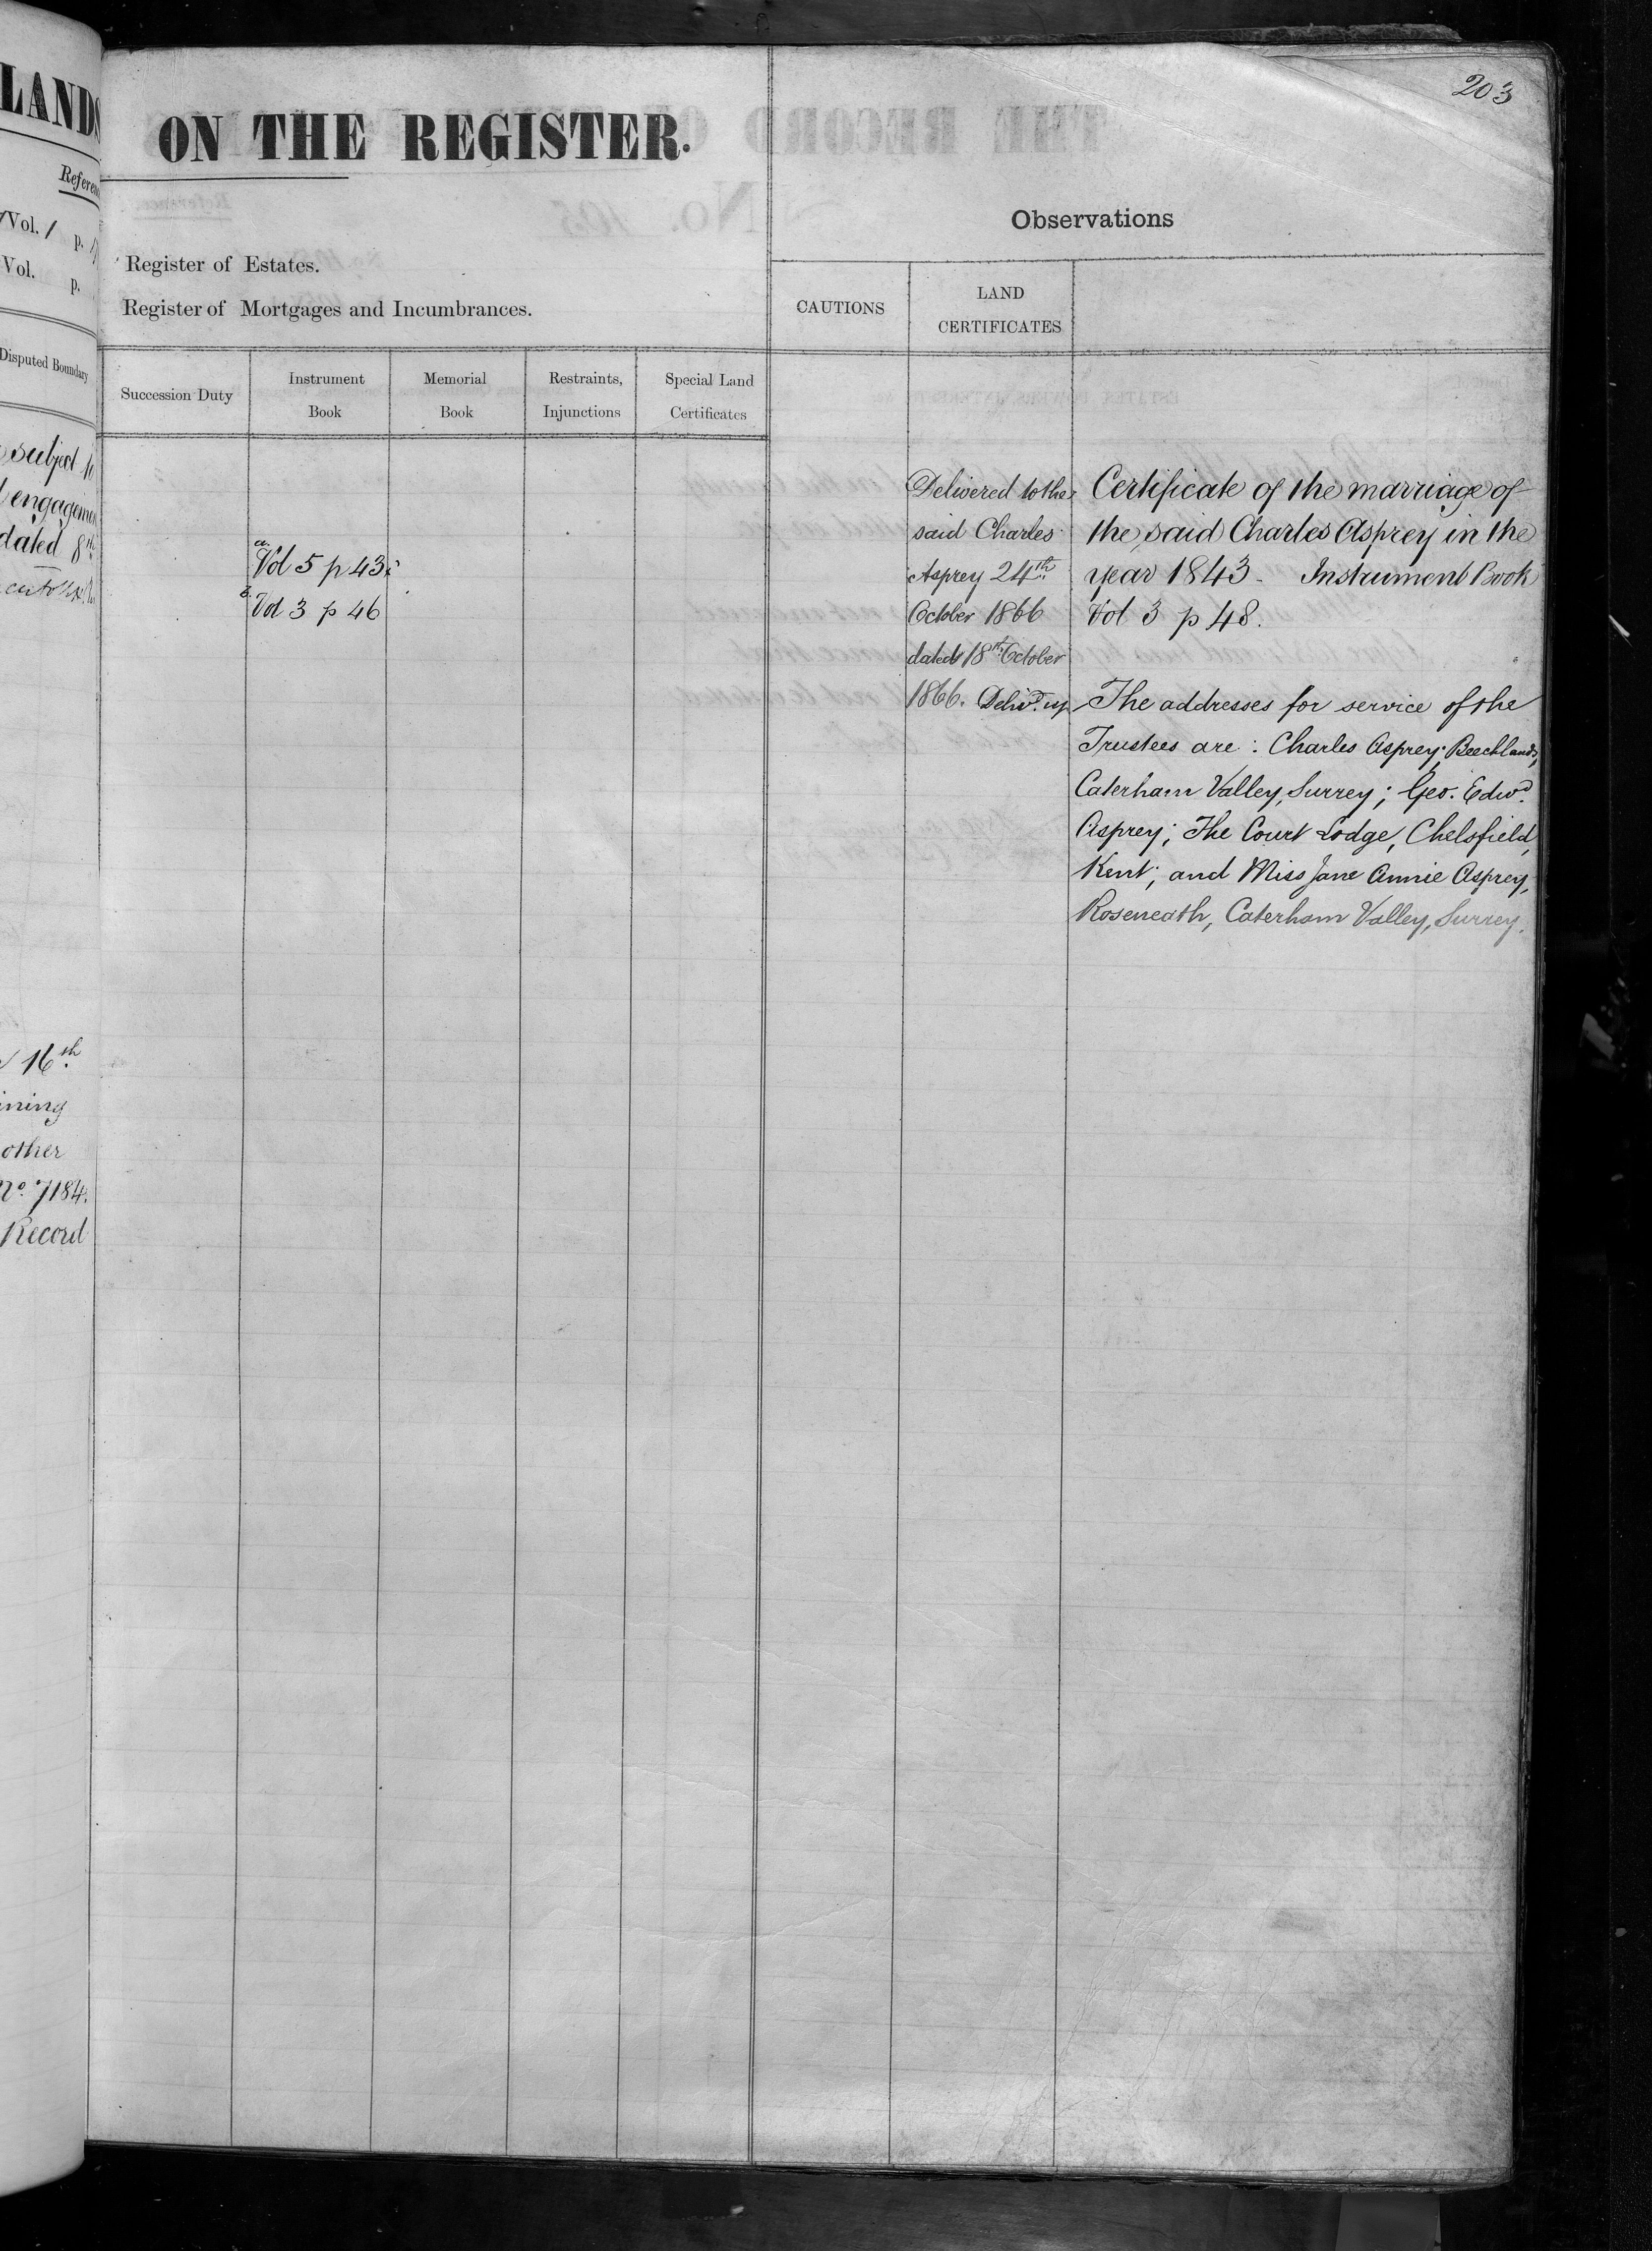 203
LANDS
ON THE REGISTER.
Observations
Vol. 1 p.
Vol. p.
Register of Estates.
Register of Mortgages and Incumbrances.
CAUTIONS
LAND
CERTIFICATES
Disputed Boundary
Succession Duty
Instrument
Book
Memorial
Book
Restraints,
Injunctions
Special Land
Certificates
subject to
dated 8th
a. Vol 5 p 43
b. Vol 3 p 46
Delivered to the
said Charles
Asprey 24th
October 1866
dated 18th October
1866. Delivd. up
Certificate of the marriage of
the said Charles Asprey in the
year 1843 - Instrument Book
Vol 3 p 48.
The addresses for service of the
Trustees are: Charles Asprey, Beechlands,
Caterham Valley, Surrey; Geo. Edwd.
Asprey; The Court Lodge, Chelsfield,
Kent; and Miss Jane Annie Asprey,
Roseneath, Caterham Valley, Surrey.
16th
other
No. 7184.
Record